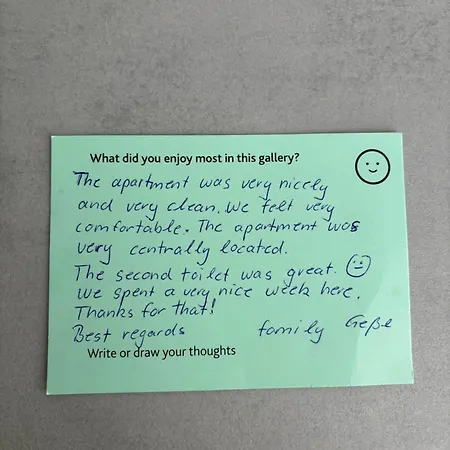 What did you enjoy most in this gallery?
The apartment was very nicely
and very clean. We felt very
comfortable. The apartment was
very centrally located.
The second toilet was great.
We spent a very nice week here.
Thanks for that!
Best regards family Geße
Write or draw your thoughts